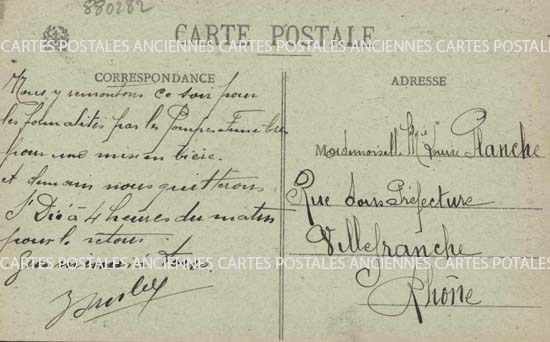 880282
CARTE POSTALE
CARTES POSTALES ANCIENNES CARTES POSTALES ANCIENNES CARTES POSTALES
CORRESPONDANCE
ADRESSE
Nous y remontons ce soir pour
les formalités par les Pompes Funèbres
pour une mise en bière.
et demain nous quitterons
St Dié à 4 heures du matin
pour le retour
Mademoiselle Mie Louise Planche
Rue Sous Préfecture
Villefranche
CARTES POSTALES ANCIENNES CARTES POSTALES ANCIENNES CARTES POTALES
Rhône